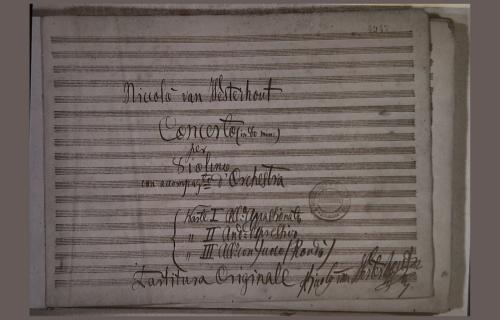 Niccolò van Westerhout
Concerto (in Do min.)
per
Violino
con accompag.to d'Orchestra
Parte I All.o Appassionato
" II And.e
" III All.o con fuoco (Rondò)
Partitura Originale
Niccolò van Westerhout